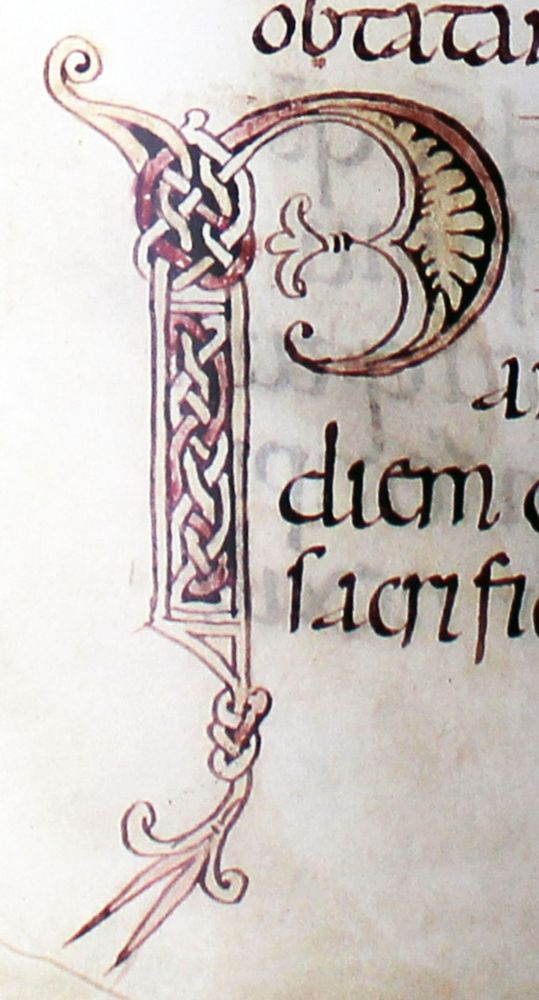 obtatan
P
an
diem
sacrific